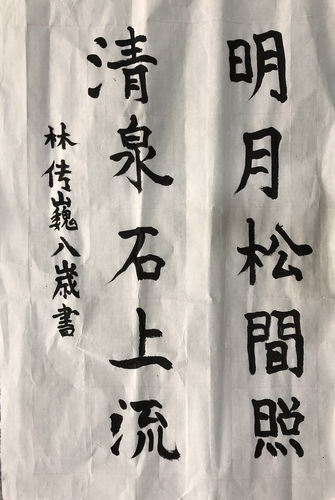 明月松間照
清泉石上流
林传巍八歲書